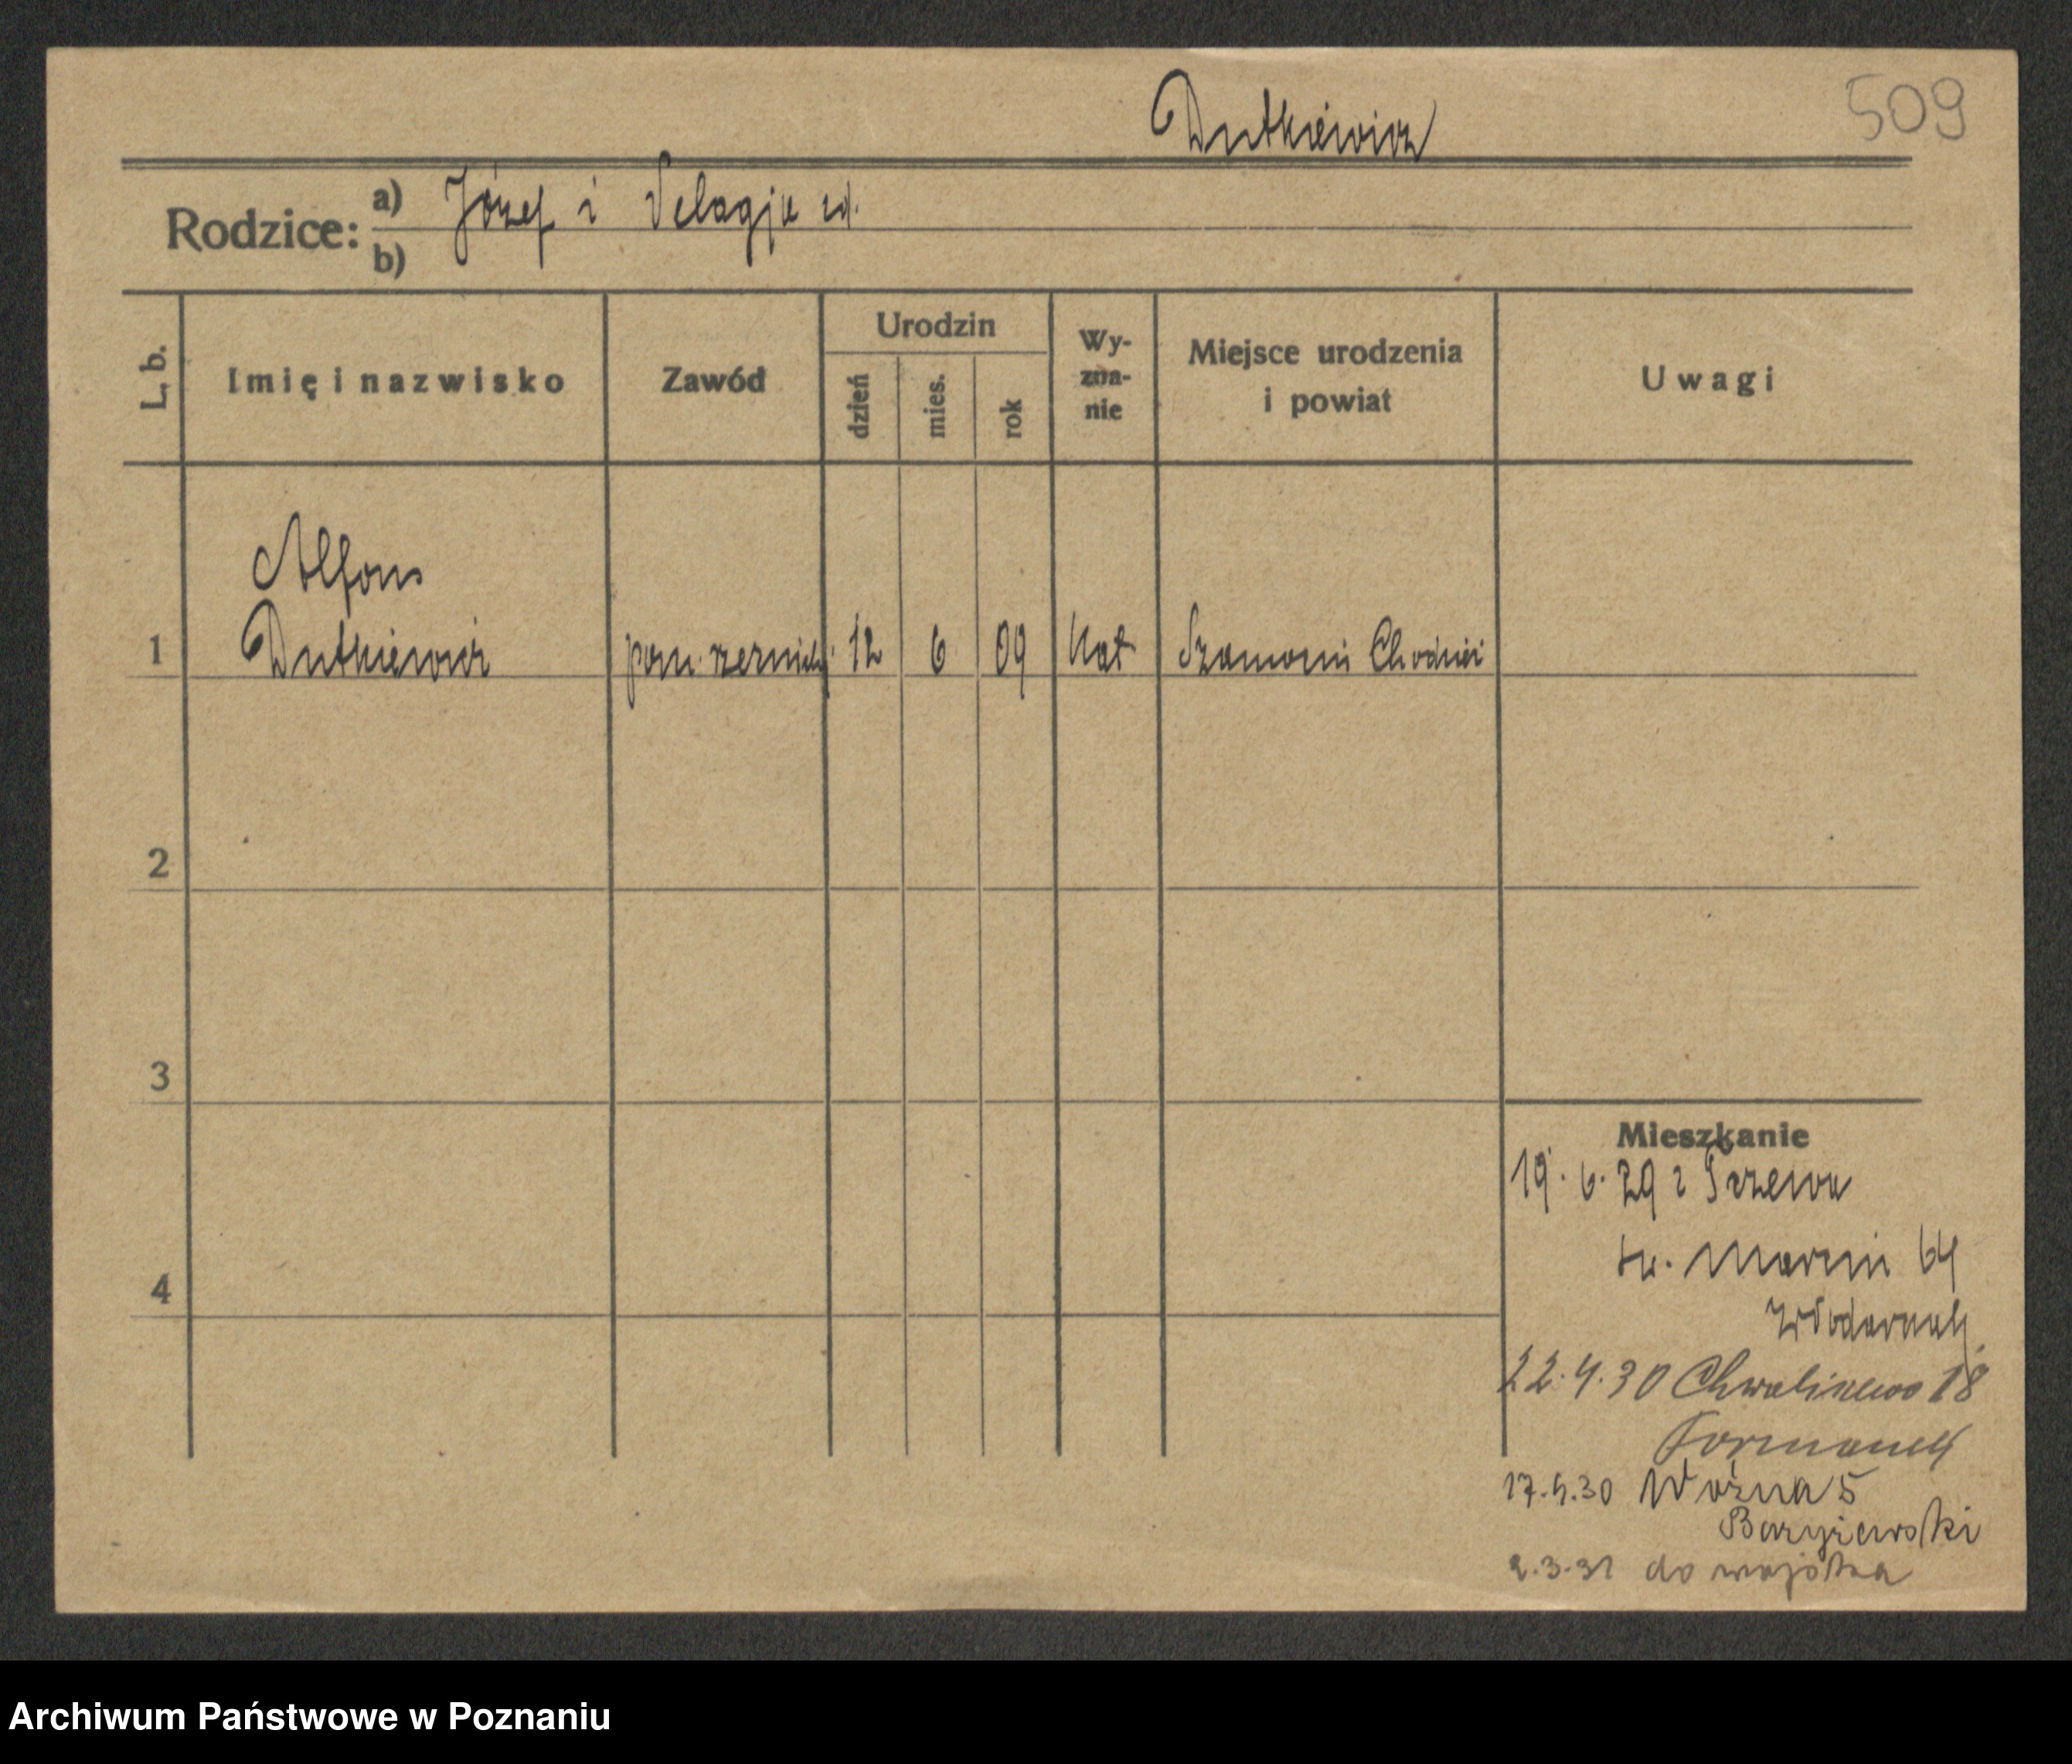 509
Dutkiewicz
Rodzice: a) Józef i Pelagja zd.
b)
L. b.
Imię i nazwisko
Zawód
Urodzin
dzień
mies.
rok
Wy-
zna-
nie
Miejsce urodzenia
i powiat
Uwagi
Alfons
1 Dutkiewicz pom. rzeźnicki 12 6 09 kat Szamocin Chodzież
2
3
4
Mieszkanie
19. 6. 29 z
św. Marcin 64
22.4.30 Chwaliszewo 18
Formanek
17.9.30 Woźna 5
2.3.31 do wojska
Archiwum Państwowe w Poznaniu